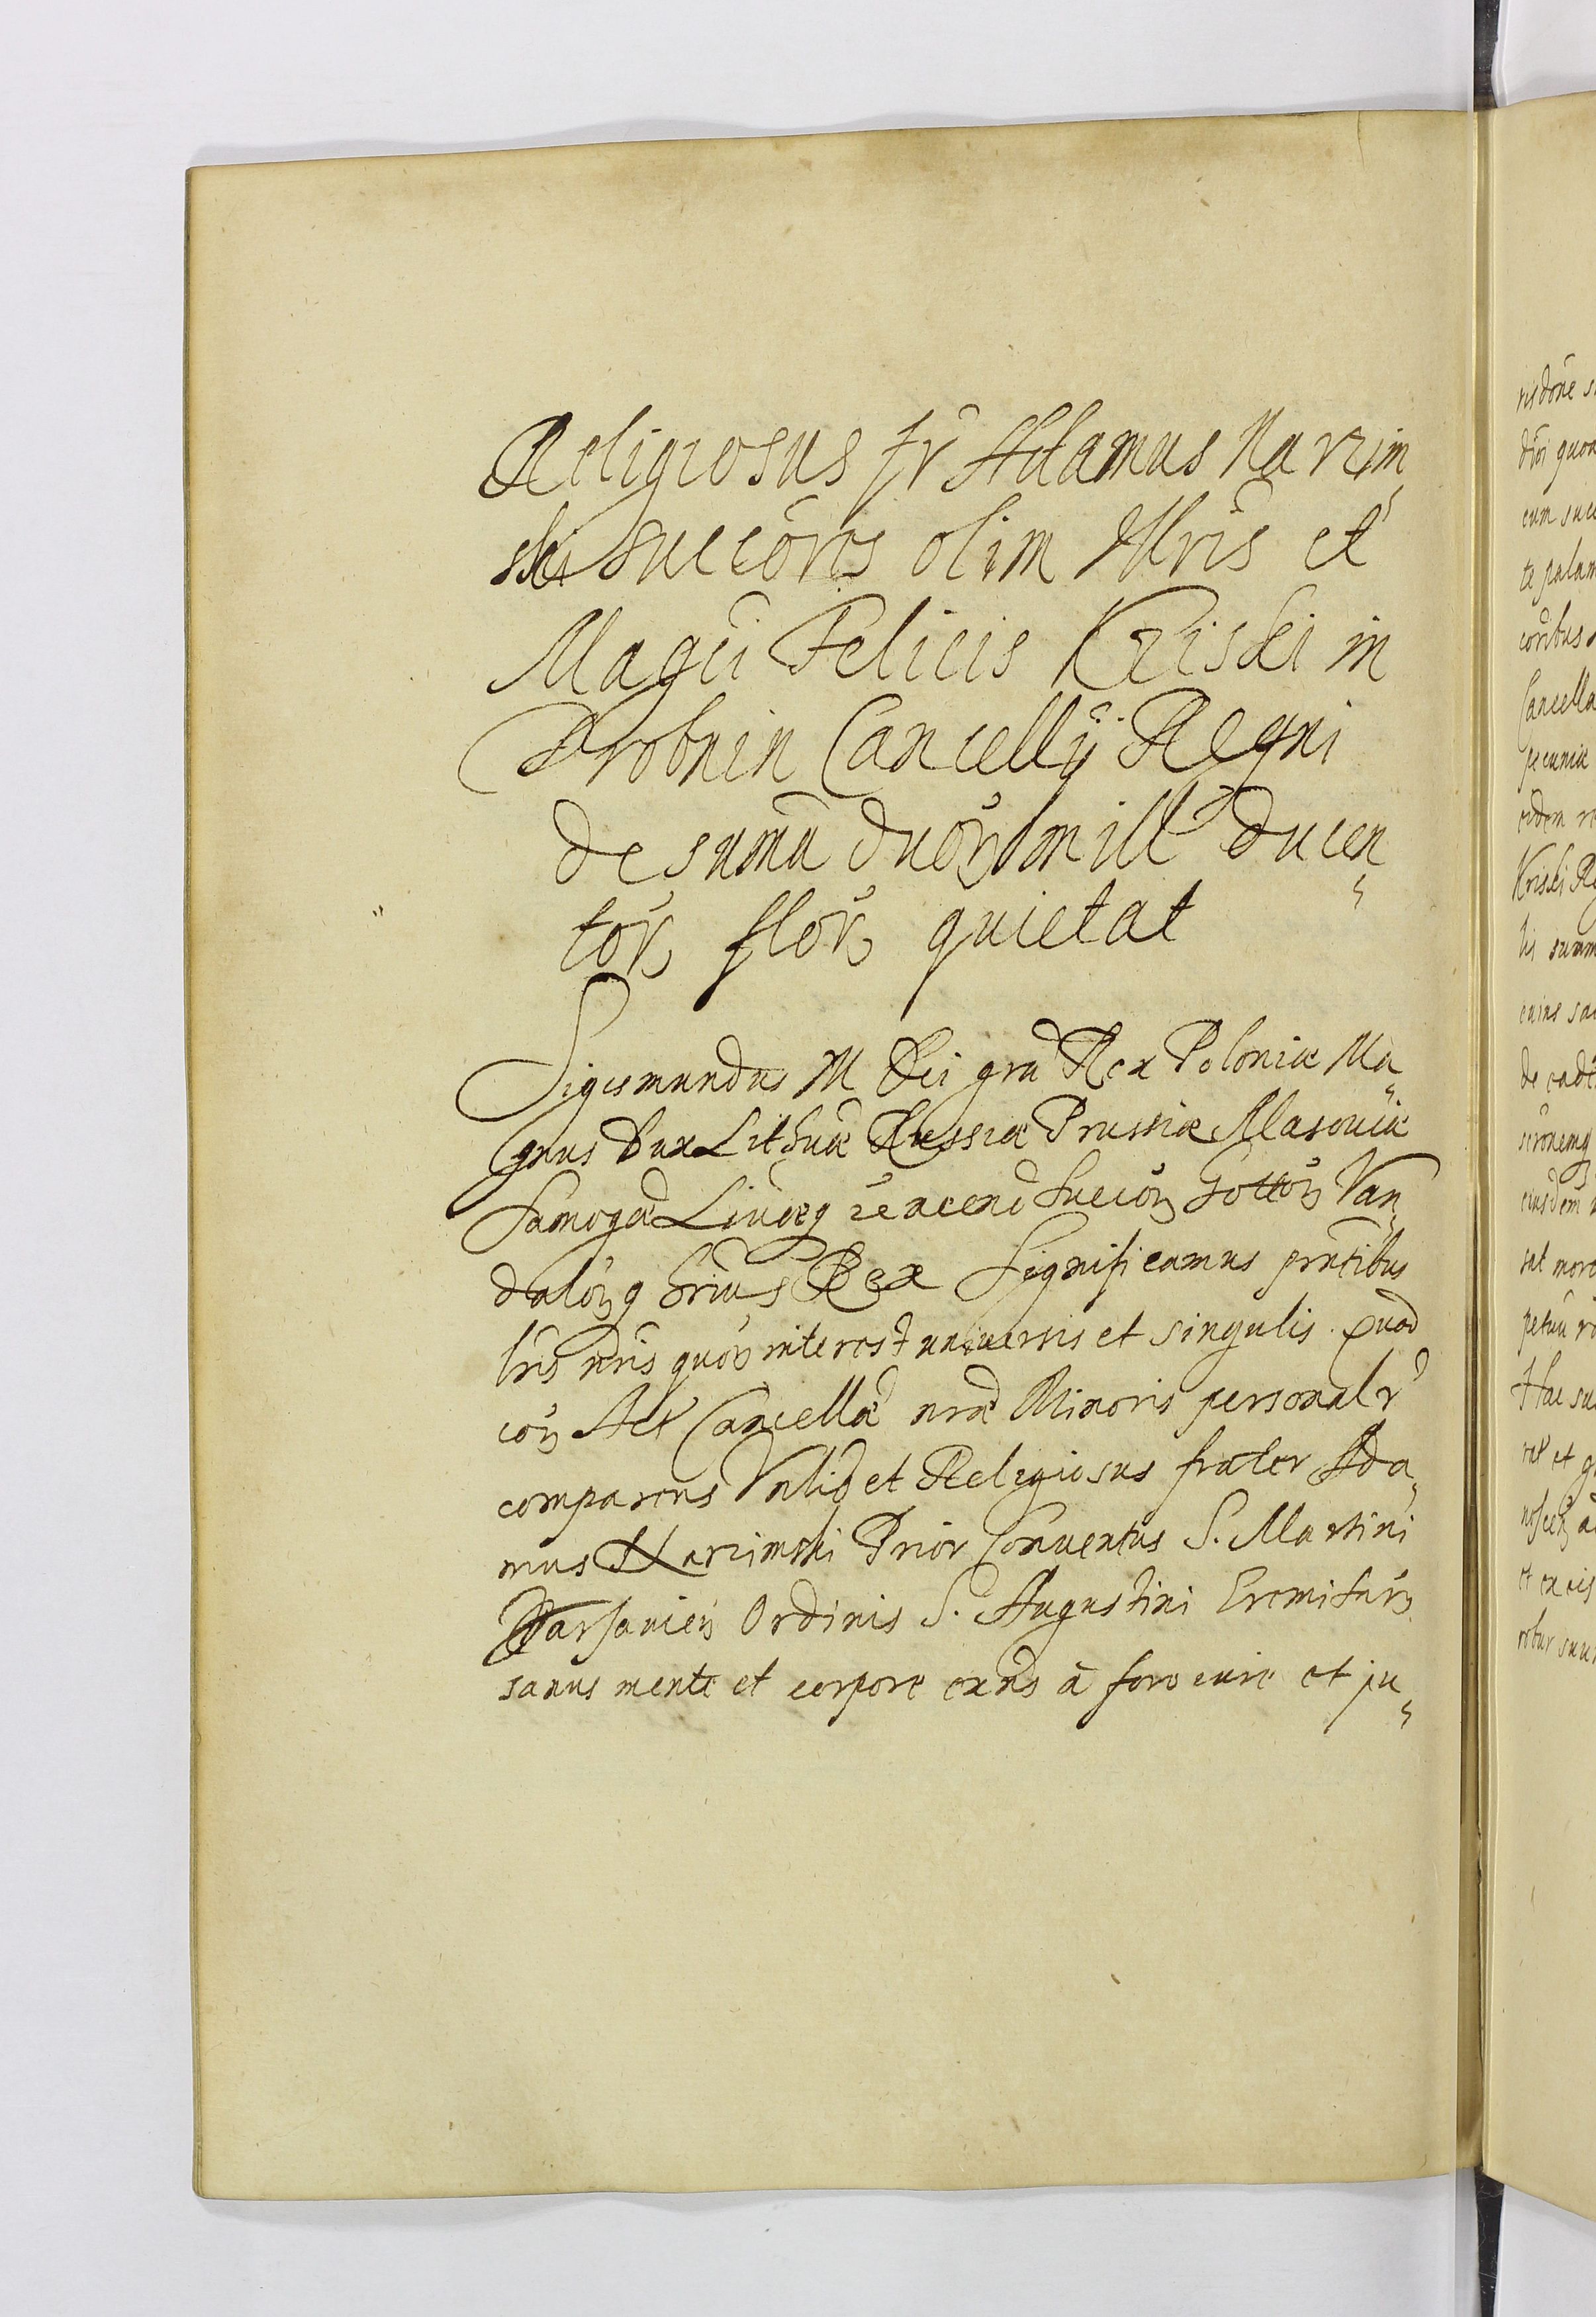 Religiosus fr Adamus Narzim
ski succoris olim Mris et
Magci Felicis Kriski in
Drobnin Cancellÿ Regni
de suma duor mill ducen
tor flor quietat
Sigismundus III Dei gra Rex Poloniæ Ma
gnus Dux Lithuæ Russiæ Prussiæ Masouiæ
Samogæ Liuoeq Suecor Gottor Van
dalorq hrius Rex Significamus prntibus
lris nris quor interest uniuersis et singulis. Quod
cor Act Cancellæ nræ Minoris personalr
comparens Religiosus frater Ada
mus Narzimski Prior Conuentus S. Martini
Varsauien Ordinis S. Augustini Eremitar
sanus mente et corpore exns à foro et ju
ris done
dioi quon
cum succ
te palam
coribus
Cancella
pecuniæ
eidem re
Kriski Re
lis summ
cuius sa
de ead
eiusdem
sat more
petuu
Hac su
et ex eis
robur suu